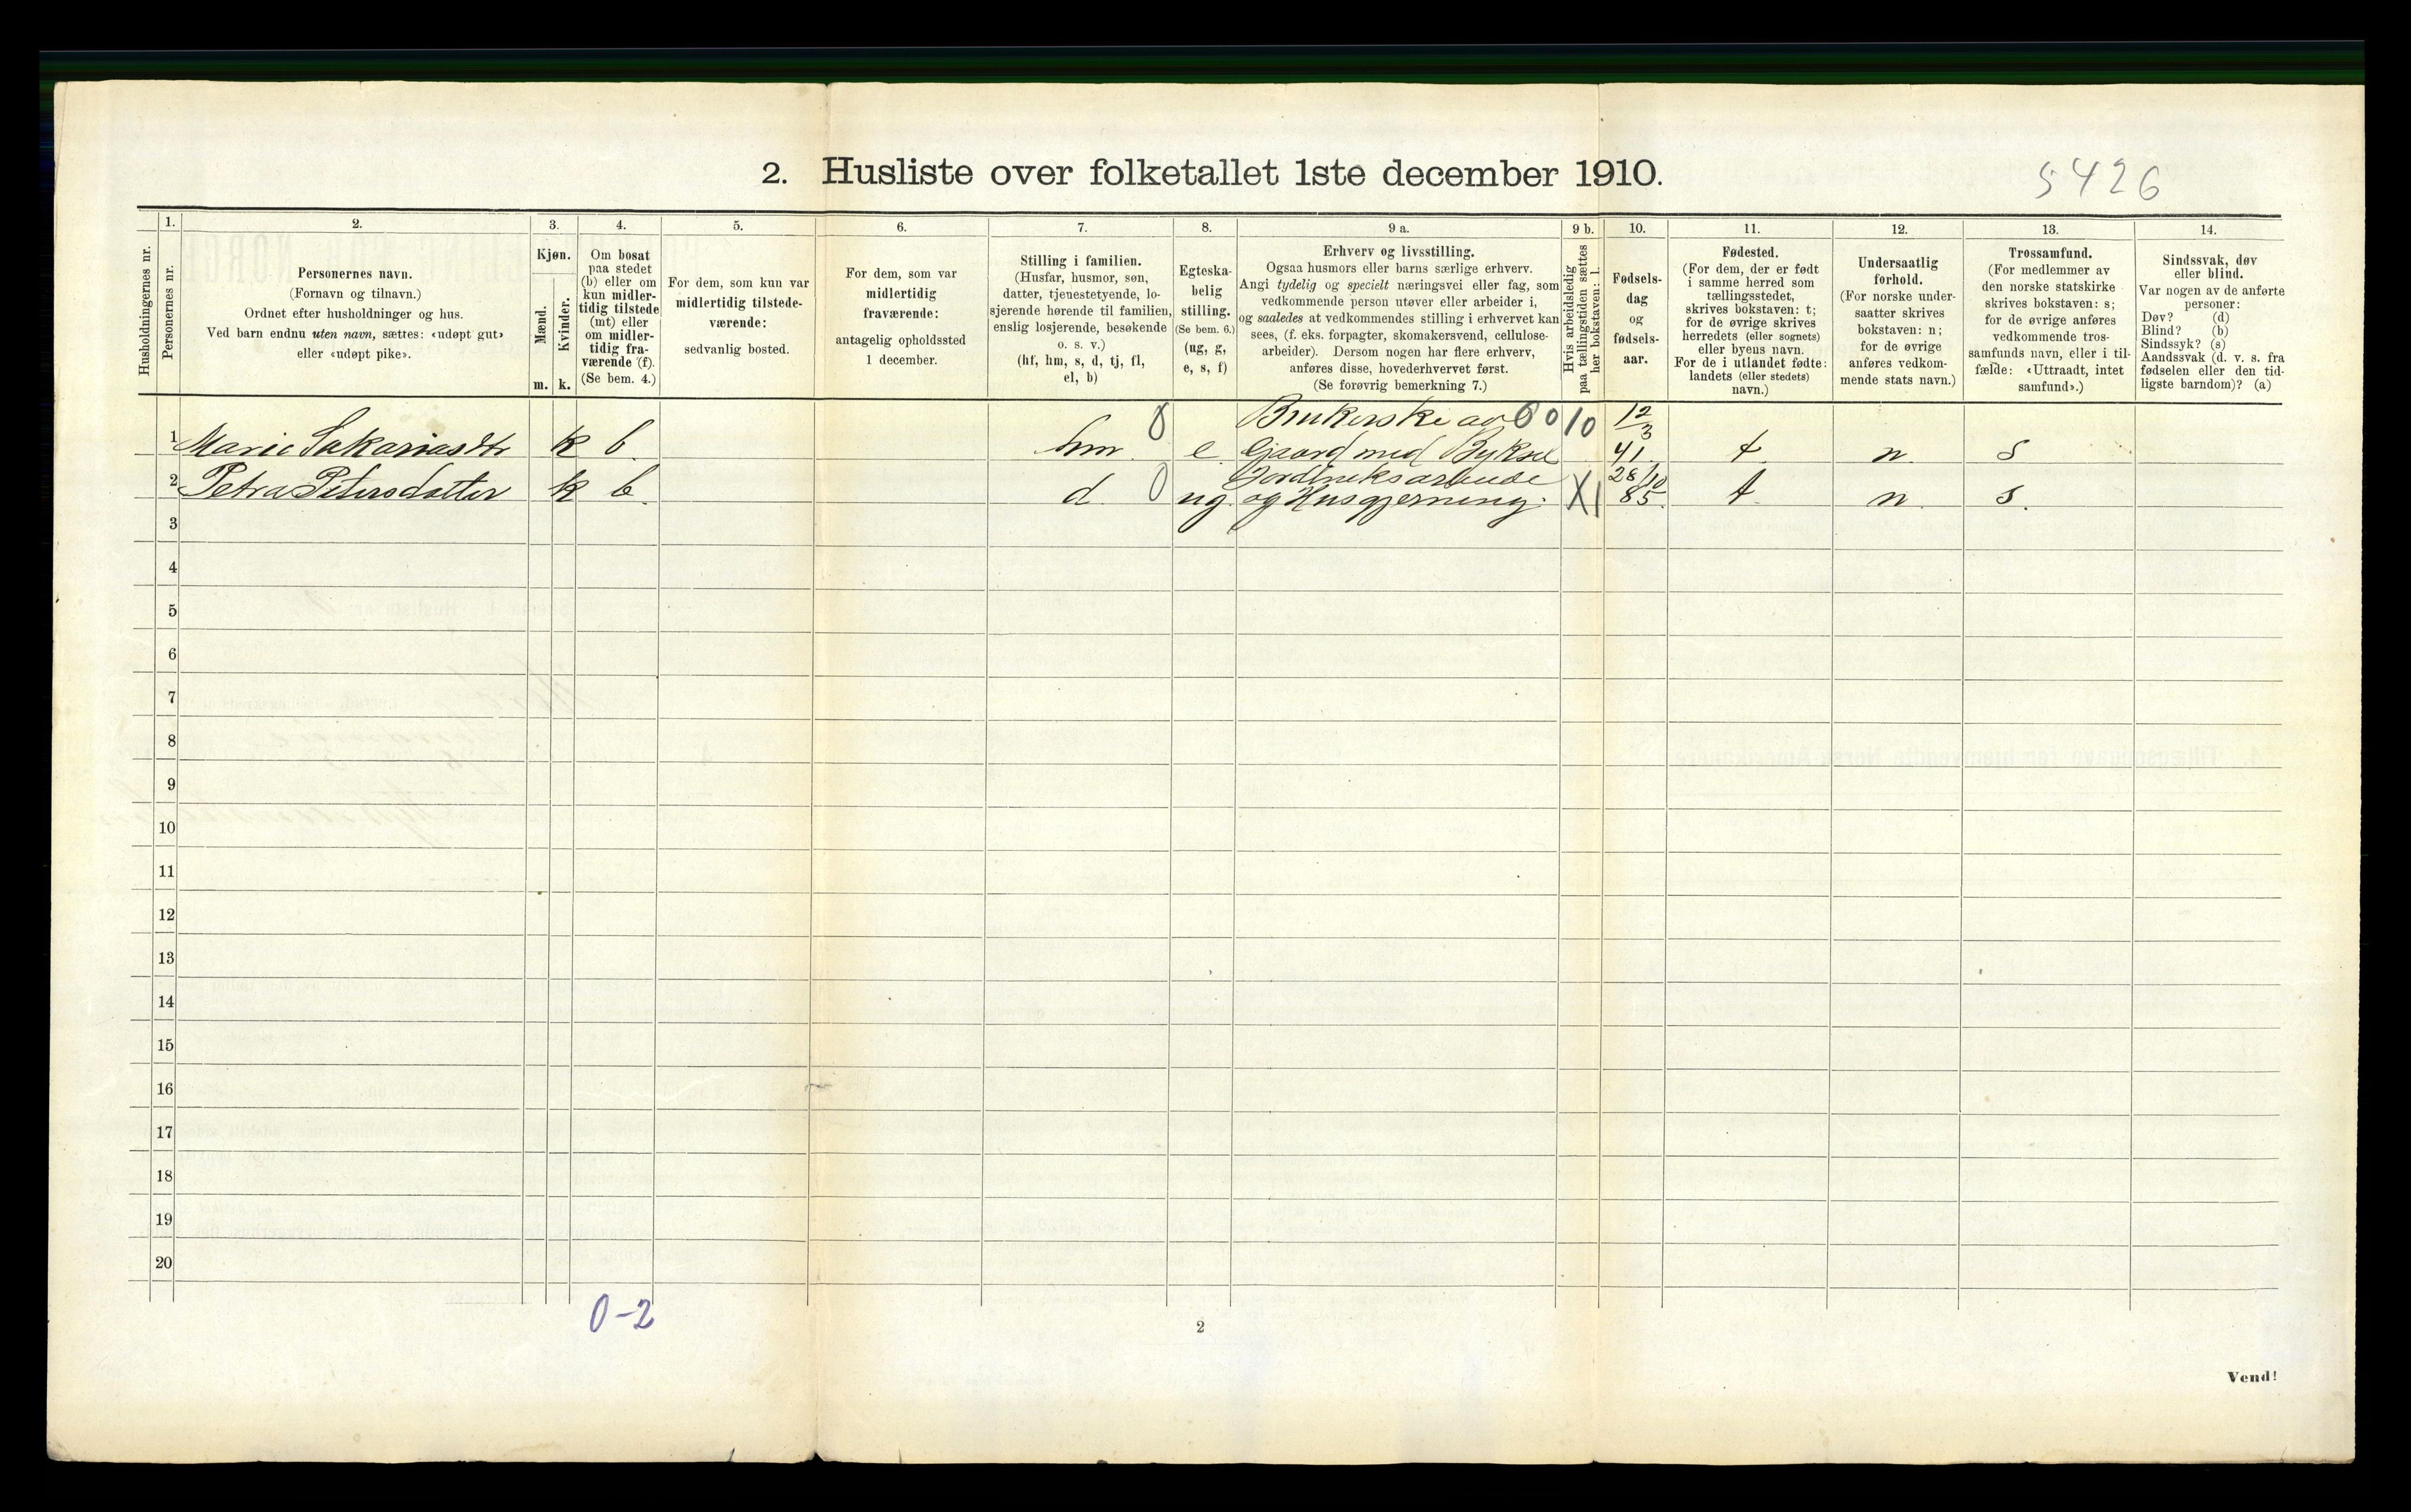 2. Husliste over folketallet 1ste december 1910.
5426
Husholdningernes nr.
1.
Personernes nr.
2.
Personernes navn.
(Fornavn og tilnavn.)
Ordnet efter husholdninger og hus.
Ved barn endnu uten navn, sættes: «udøpt gut»
eller «udøpt pike».
3.
Kjøn.
Mænd.
Kvinder.
m. k.
4.
Om bosat
paa stedet
(b) eller om
kun midler-
tidig tilstede
(mt) eller
om midler-
tidig fra-
værende (f).
(Se bem. 4.)
5.
For dem, som kun var
midlertidig tilstede-
værende:
sedvanlig bosted.
6.
For dem, som var
midlertidig
fraværende:
antagelig opholdssted
1 december.
7.
Stilling i familien.
(Husfar, husmor, søn,
datter, tjenestetyende, lo-
sjerende hørende til familien,
enslig losjerende, besøkende
o. s. v.)
(hf, hm, s, d, tj, fl,
el, b)
8.
Egteska-
belig
stilling.
(Se bem. 6.)
(ug, g,
e, s, f)
9 a.
Erhverv og livsstilling.
Ogsaa husmors eller barns særlige erhverv.
Angi tydelig og specielt næringsvei eller fag, som
vedkommende person utøver eller arbeider i,
og saaledes at vedkommendes stilling i erhvervet kan
sees, (f. eks. forpagter, skomakersvend, cellulose-
arbeider). Dersom nogen har flere erhverv,
anføres disse, hovederhvervet først.
(Se forøvrig bemerkning 7.)
9 b.
Hvis arbeidsledig
paa tællingstiden sættes
her bokstaven: l.
10.
Fødsels-
dag
og
fødsels-
aar.
11.
Fødested.
(For dem, der er født
i samme herred som
tællingsstedet,
skrives bokstaven: t;
for de øvrige skrives
herredets (eller sognets)
eller byens navn.
For de i utlandet fødte:
landets (eller stedets)
navn.)
12.
Undersaatlig
forhold.
(For norske under-
saatter skrives
bokstaven: n;
for de øvrige
anføres vedkom-
mende stats navn.)
13.
Trossamfund.
(For medlemmer av
den norske statskirke
skrives bokstaven: s;
for de øvrige anføres
vedkommende tros-
samfunds navn, eller i til-
fælde: «Uttraadt, intet
samfund».)
14.
Sindssvak, døv
eller blind.
Var nogen av de anførte
personer:
Døv? (d)
Blind? (b)
Sindssyk? (s)
Aandssvak (d. v. s. fra
fødselen eller den tid-
ligste barndom)? (a)
Brukerske av 0010 12/3
1 Marie Sakariasdtr k b. hm. 0 e. Gaard med Byksel 41. t n. s
Jordbruksarbeide 28/10
2 Petra Petersdatter k b. d. 0 ug. og Husgjerning. X1 85. t n. s.
3
4
5
6
7
8
9
10
11
12
13
14
15
16
17
18
19
20
0-2
2
Vend!